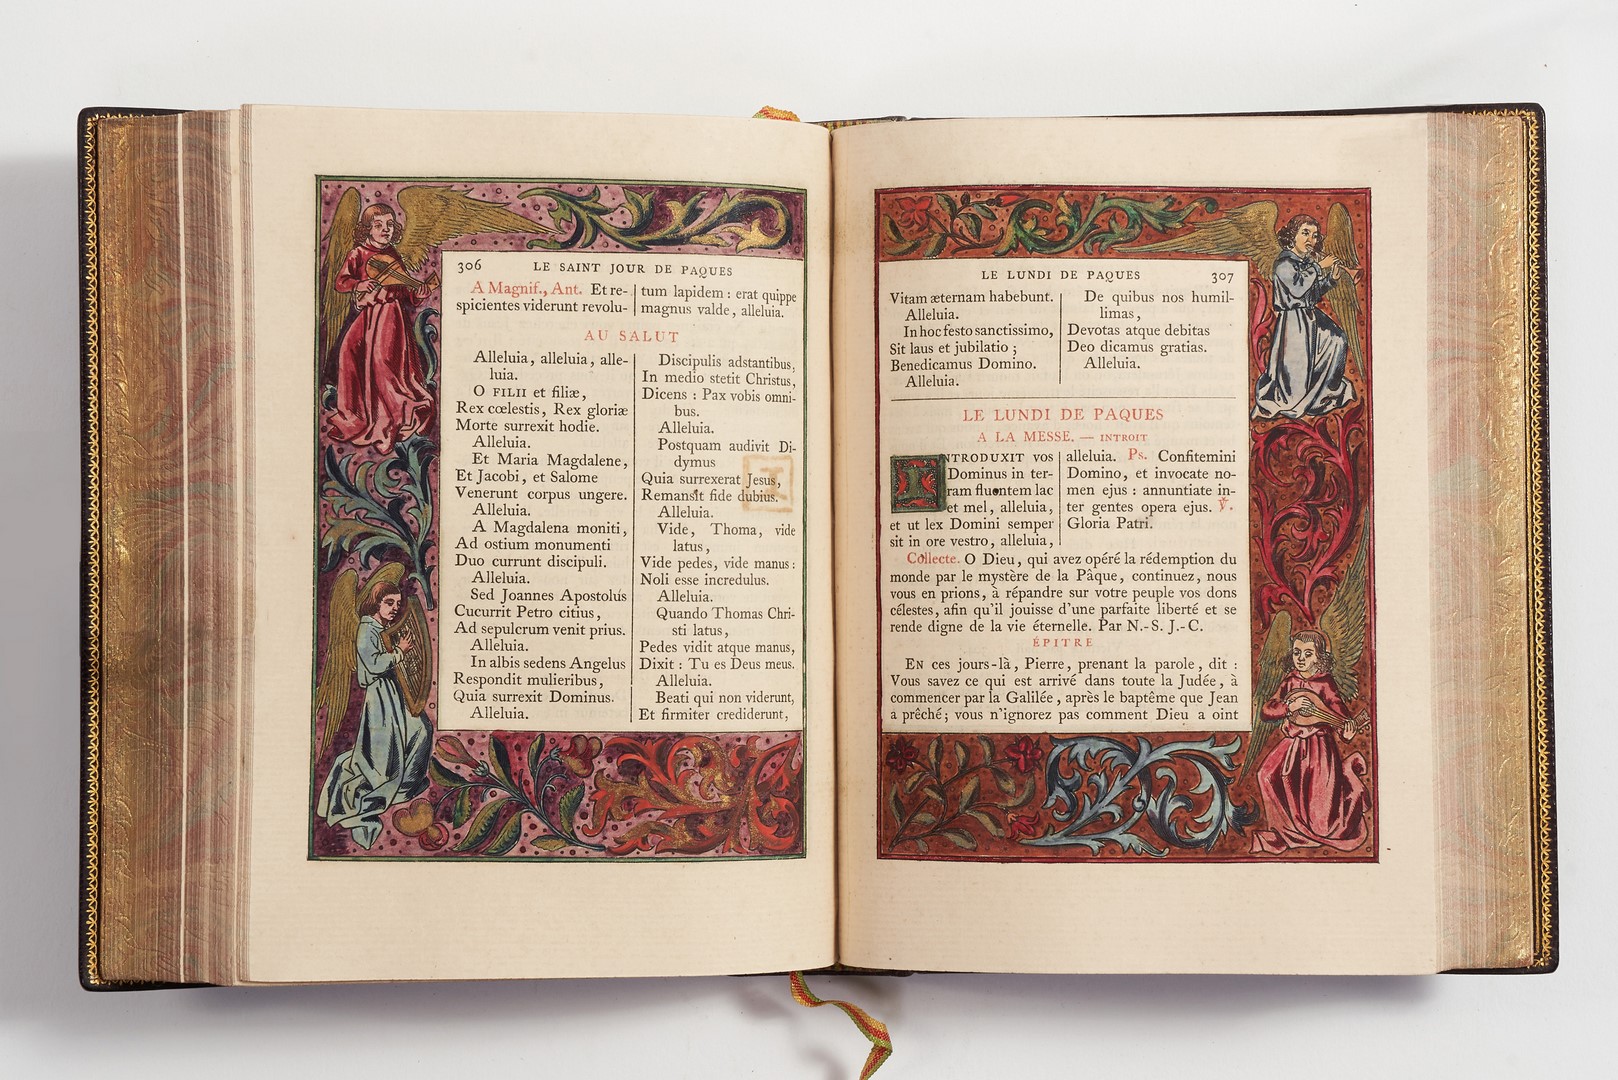 306 LE SAINT JOUR DE PAQUES
A Magnif., Ant. Et re-
spicientes viderunt revolu-
tum lapidem : erat quippe
magnus valde, alleluia.
AU SALUT
Alleluia, alleluia, alle-
luia.
O FILII et filiæ,
Rex cœlestis, Rex gloriæ
Morte surrexit hodie.
Alleluia.
Et Maria Magdalene,
Et Jacobi, et Salome
Venerunt corpus ungere.
Alleluia.
A Magdalena moniti,
Ad ostium monumenti
Duo currunt discipuli.
Alleluia.
Sed Joannes Apostolus
Cucurrit Petro citius,
Ad sepulcrum venit prius.
Alleluia.
In albis sedens Angelus
Respondit mulieribus,
Quia surrexit Dominus.
Alleluia.
Discipulis adstantibus,
In medio stetit Christus,
Dicens : Pax vobis omni-
bus.
Alleluia.
Postquam audivit Di-
dymus
Quia surrexerat Jesus,
Remansit fide dubius.
Alleluia.
Vide, Thoma, vide
latus,
Vide pedes, vide manus :
Noli esse incredulus.
Alleluia.
Quando Thomas Chri-
sti latus,
Pedes vidit atque manus,
Dixit : Tu es Deus meus.
Alleluia.
Beati qui non viderunt,
Et firmiter crediderunt,
LE LUNDI DE PAQUES 307
Vitam æternam habebunt.
Alleluia.
In hoc festo sanctissimo,
Sit laus et jubilatio ;
Benedicamus Domino.
Alleluia.
De quibus nos humil-
limas,
Devotas atque debitas
Deo dicamus gratias.
Alleluia.
LE LUNDI DE PAQUES
A LA MESSE. — INTROIT
INTRODUXIT vos
Dominus in ter-
ram fluentem lac
et mel, alleluia,
et ut lex Domini semper
sit in ore vestro, alleluia,
alleluia. Ps. Confitemini
Domino, et invocate no-
men ejus : annuntiate in-
ter gentes opera ejus. ℣.
Gloria Patri.
Collecte. O Dieu, qui avez opéré la rédemption du
monde par le mystère de la Pâque, continuez, nous
vous en prions, à répandre sur votre peuple vos dons
célestes, afin qu'il jouisse d'une parfaite liberté et se
rende digne de la vie éternelle. Par N.-S. J.-C.
ÉPITRE
EN ces jours-là, Pierre, prenant la parole, dit :
Vous savez ce qui est arrivé dans toute la Judée, à
commencer par la Galilée, après le baptême que Jean
a prêché; vous n'ignorez pas comment Dieu a oint